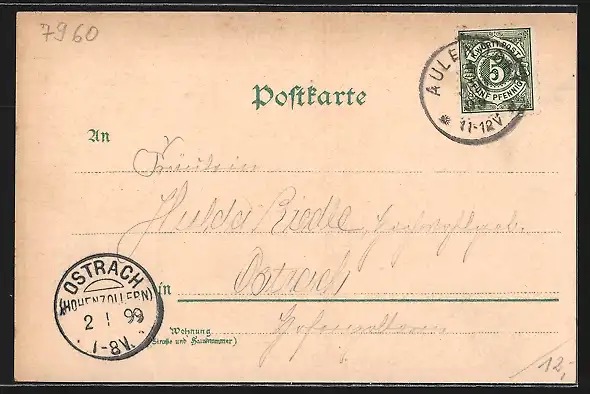 7960
K. WÜRTT. POST
5
FÜNF PFENNIG
AULE
11-12V
Postkarte
An
Fräulein
Hulda Riedle,
in Ostrach
Hohenzollern
Wohnung
(Straße und Hausnummer)
OSTRACH
(HOHENZOLLERN)
2 1 99
1-8V.
12,-